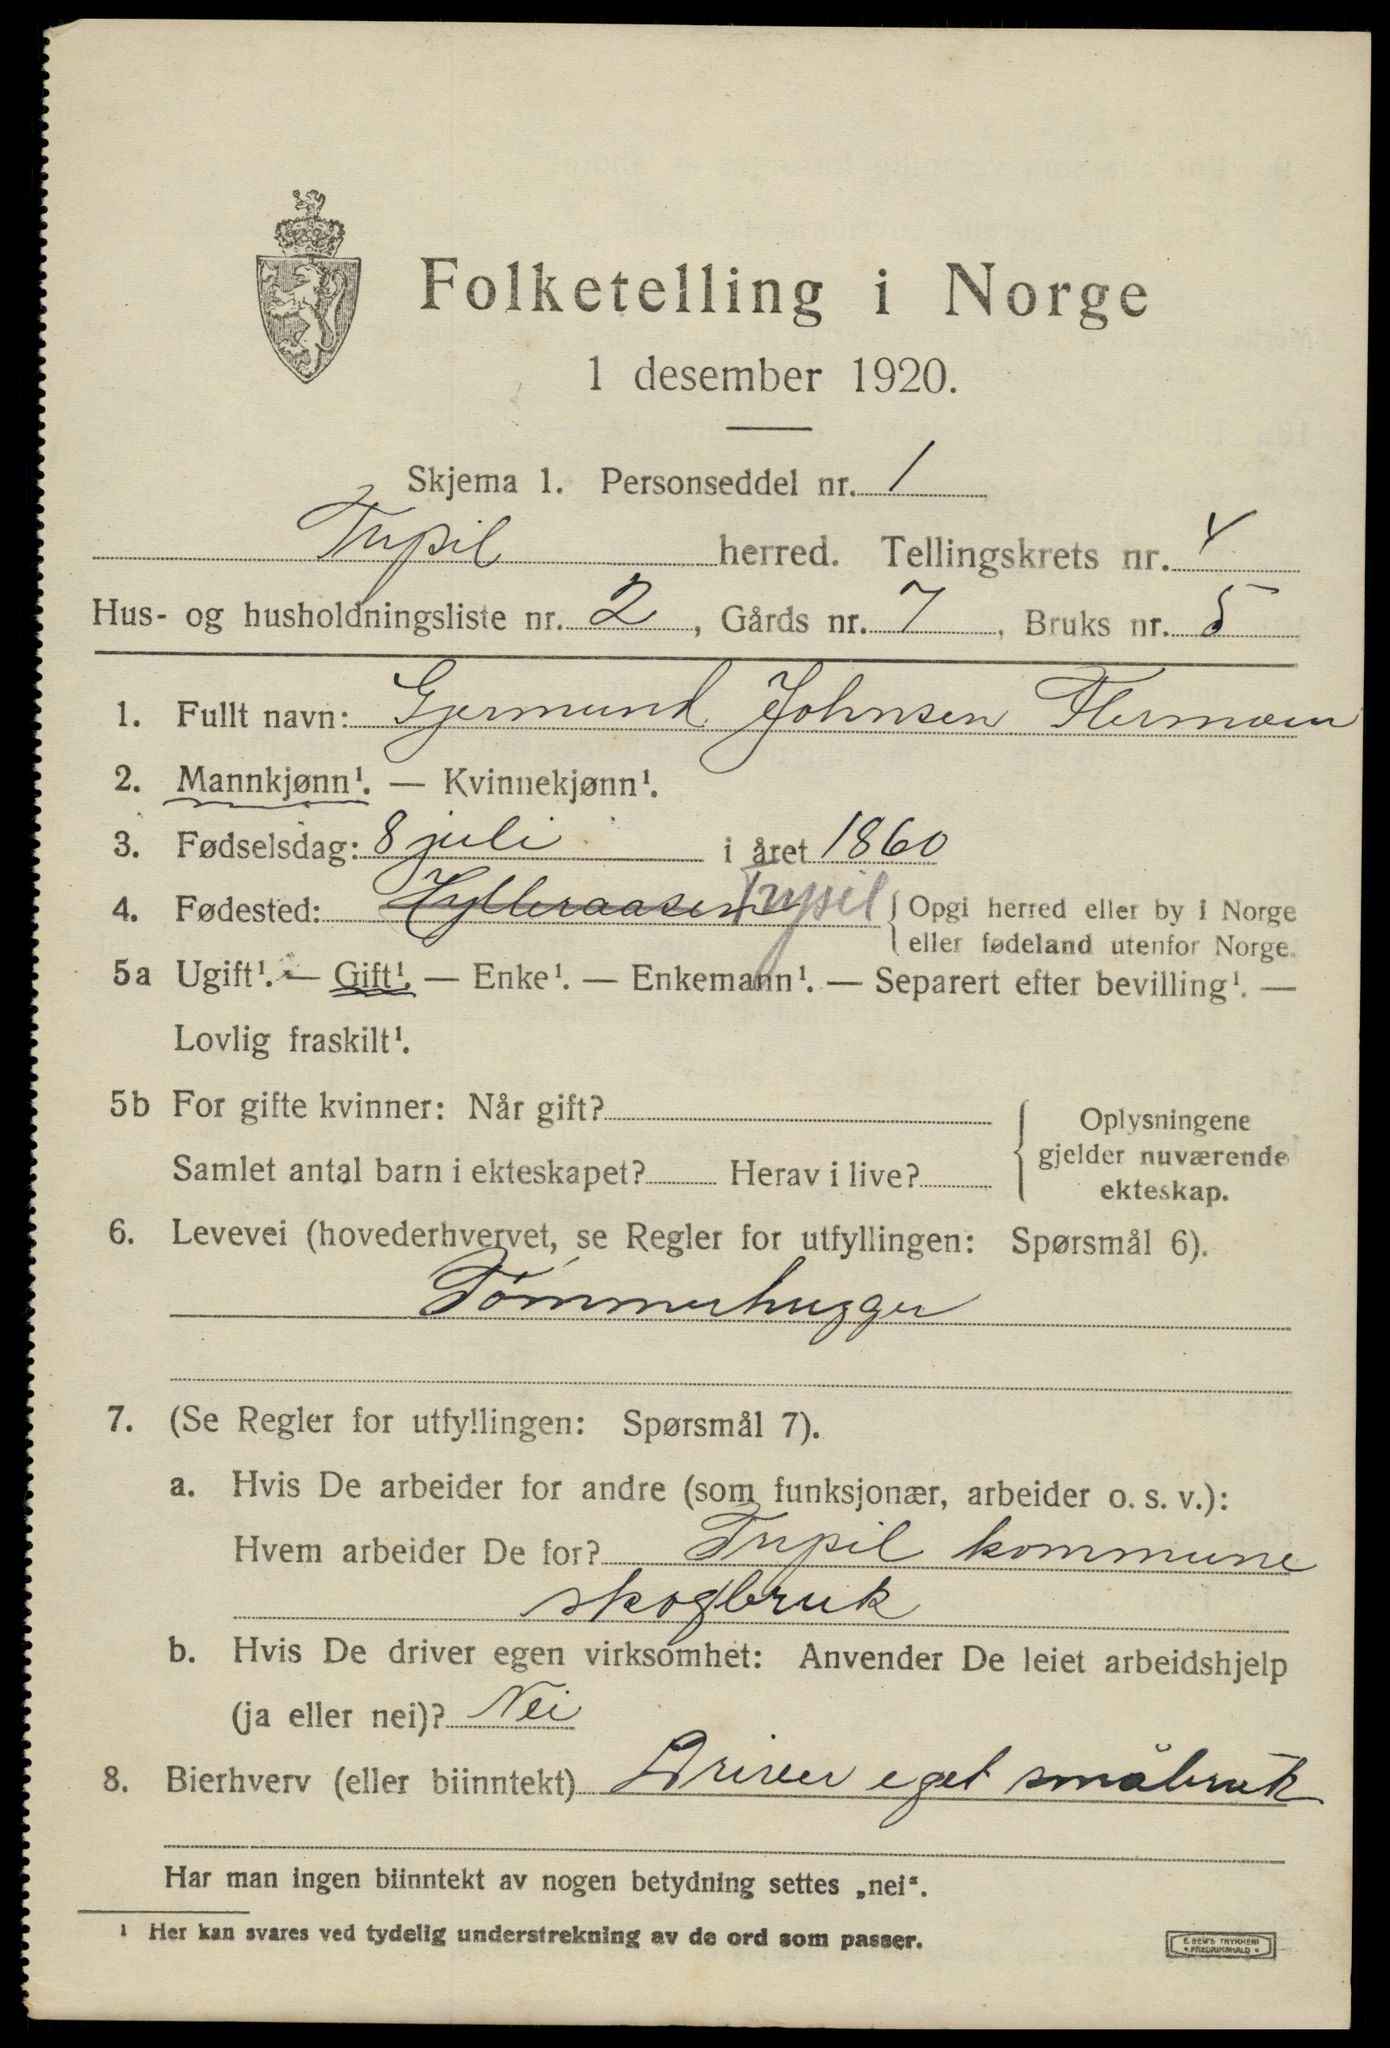 Folketelling i Norge
1 desember 1920.
Skjema 1. Personseddel nr. 1
Trysil herred. Tellingskrets nr. 4
Hus- og husholdningsliste nr. 2, Gårds nr. 7, Bruks nr. 5
1. Fullt navn: Gjermund Johnsen Flermoen
2. Mannkjønn¹. — Kvinnekjønn¹.
3. Fødselsdag: 8 juli i året 1860
4. Fødested: Hylleraasen Trysil { Opgi herred eller by i Norge
eller fødeland utenfor Norge.
5a Ugift¹. — Gift¹. — Enke¹. — Enkemann¹. — Separert efter bevilling¹. —
Lovlig fraskilt¹.
5b For gifte kvinner: Når gift?
Samlet antal barn i ekteskapet? Herav i live?
{ Oplysningene
gjelder nuværende
ekteskap.
6. Levevei (hovederhvervet, se Regler for utfyllingen: Spørsmål 6).
Tømmerhugger
7. (Se Regler for utfyllingen: Spørsmål 7).
a. Hvis De arbeider for andre (som funksjonær, arbeider o. s. v.):
Hvem arbeider De for? Trysil kommune
skogbruk
b. Hvis De driver egen virksomhet: Anvender De leiet arbeidshjelp
(ja eller nei)? Nei
8. Bierhverv (eller biinntekt) Driver eget småbruk
Har man ingen biinntekt av nogen betydning settes „nei“.
¹ Her kan svares ved tydelig understrekning av de ord som passer.
E. SEM'S TRYKKERI
• FREDRIKSHALD •